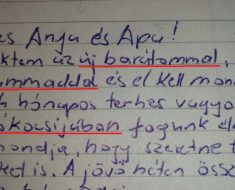 es Anyu és Apu!
ktem az új barátommal,
ummaddal és el kell mon
h hónapos terhes vagyo
ókocsijában fogunk él
ondja, hogy szeretne t
kel is. A jövő héten össz